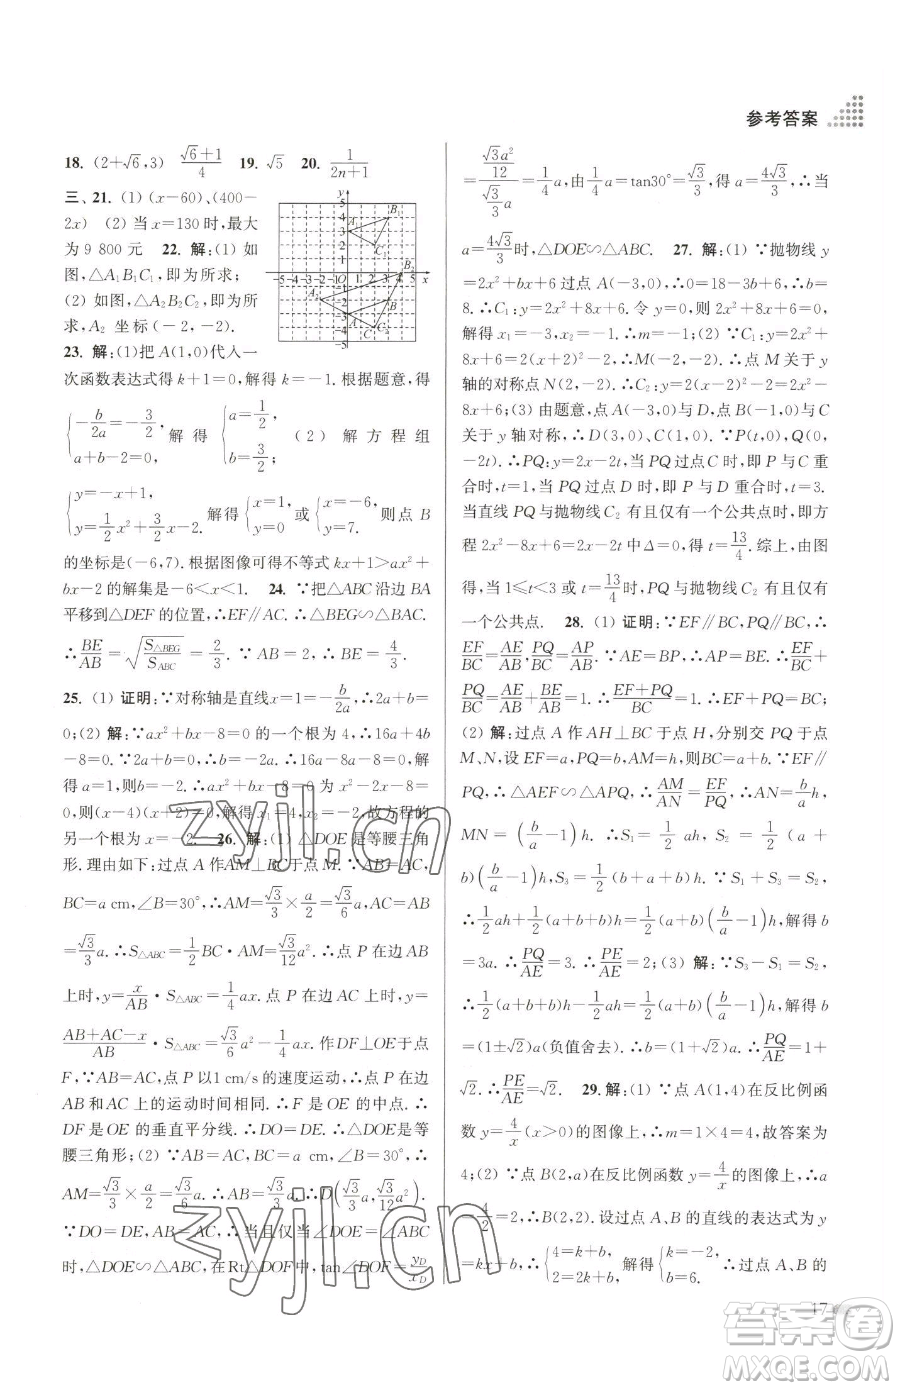 参考答案
18. (2+√6,3) (√6+1)/4 19. √5 20. 1/(2n+1)
三、21. (1) (x-60)、(400-
2x) (2) 当x=130时,最大
为9 800元 22. 解:(1) 如
图,△A₁B₁C₁,即为所求;
(2) 如图,△A₂B₂C₂,即为所
求,A₂ 坐标(-2,-2).
23. 解:(1)把A(1,0)代入一
次函数表达式得k+1=0,解得k=-1.根据题意,得
{-b/2a=-3/2, a+b-2=0, 解得 {a=1/2, b=3/2; (2) 解方程组
{y=-x+1, y=1/2x²+3/2x-2. 解得{x=1, y=0 或{x=-6, y=7. 则点B
的坐标是(-6,7).根据图像可得不等式kx+1>ax²+
bx-2的解集是-6<x<1. 24. ∵把△ABC沿边BA
平移到△DEF的位置,∴EF∥AC.∴△BEG∽△BAC.
∴BE/AB=√(S△BEG/S△ABC)=2/3.∵AB=2,∴BE=4/3.
25. (1) 证明:∵对称轴是直线x=1=-b/2a,∴2a+b=
0;(2) 解:∵ax²+bx-8=0的一个根为4,∴16a+4b
-8=0.∵2a+b=0,∴b=-2a.∴16a-8a-8=0.解
得a=1,则b=-2.∴ax²+bx-8=0为x²-2x-8=
0,则(x-4)(x+2)=0.解得x₁=4,x₂=-2,故方程的
另一个根为x=-2. 26. 解:(1) △DOE是等腰三角
形.理由如下:过点A作AM⊥BC于点M.∵AB=AC,
BC=a cm,∠B=30°,∴AM=√3/3×a/2=√3/6a,AB
=√3/3a.∴S△ABC=1/2BC·AM=√3/12a².∴点P在边AB
上时,y=x/AB·S△ABC=1/4ax.点P在边AC上时,y=
(AB+AC-x)/AB·S△ABC=√3/6a²-1/4ax.作DF⊥OE于点
F,∵AB=AC,点P以1 cm/s的速度运动,∴点P在边
AB和AC上的运动时间相同.∴F是OE的中点.∴
DF是OE的垂直平分线.∴DO=DE.∴△DOE是等
腰三角形;(2) ∵AB=AC,BC=a cm,∠B=30°,∴
AM=√3/3×a/2=√3/6a,AB=√3/3a.∴D(√3/3a,√3/12a²).
∵DO=DE,AB=AC,∴当且仅当∠DOE=∠ABC
时,△DOE∽△ABC,在Rt△DOF中,tan∠DOF=yD/xD
=(√3a²/12)/(√3/3a)=1/4a,由1/4a=tan30°=√3/3,得a=4√3/3,∴当
a=4√3/3时,△DOE∽△ABC. 27. 解:(1) ∵抛物线y
=2x²+bx+6过点A(-3,0),∴0=18-3b+6.∴b=
8.∴C₁:y=2x²+8x+6.令y=0,则2x²+8x+6=0,
解得x₁=-3,x₂=-1.∴m=-1;(2) ∵C₁:y=2x²+
8x+6=2(x+2)²-2,∴M(-2,-2).∴点M关于y
轴的对称点N(2,-2).∴C₂:y=2(x-2)²-2=2x²-
8x+6;(3) 由题意,点A(-3,0)与D,点B(-1,0)与C
关于y轴对称,∴D(3,0)、C(1,0).∵P(t,0),Q(0,
-2t).∴PQ:y=2x-2t.当PQ过点C时,即P与C重
合时,t=1,当PQ过点D时,即P与D重合时,t=3.
当直线PQ与抛物线C₂有且只有一个公共点时,即方
程2x²-8x+6=2x-2t中Δ=0,得t=13/4.综上,由图
得,当1≤t<3或t=13/4时,PQ与抛物线C₂有且只有
一个公共点. 28. (1) 证明:∵EF∥BC,PQ∥BC,∴
EF/BC=AE/AB,PQ/BC=AP/AB.∵AE=BP,∴AP=BE.∴EF/BC+
PQ/BC=AE/AB+BE/AB=1.∴(EF+PQ)/BC=1.∴EF+PQ=BC;
(2) 解:过点A作AH⊥BC于点H,分别交PQ于点
M、N,设EF=a,PQ=b,AM=h,则BC=a+b.∵EF∥
PQ,∴△AEF∽△APQ.∴AM/AN=EF/PQ.∴AN=b/a h,
MN=(b/a-1)h.∴S₁=1/2ah,S₂=1/2(a+
b)(b/a-1)h,S₃=1/2(a+b+b)h.∵S₁+S₃=S₂,
∴1/2ah+1/2(a+b+b)h=1/2(a+b)(b/a-1)h,解得b
=3a.∴PQ/AE=3.∴PE/AE=2;(3) 解:∵S₃-S₁=S₂,
∴1/2(a+b+b)h-1/2ah=1/2(a+b)(b/a-1)h,解得b
=(1±√2)a(负值舍去).∴b=(1+√2)a.∴PQ/AE=1+
√2.∴PE/AE=√2. 29. 解:(1) ∵点A(1,4)在反比例函
数y=4/x(x>0)的图像上,∴m=1×4=4,故答案为
4;(2) ∵点B(2,a)在反比例函数y=4/x的图像上,∴a
=4/2=2,∴B(2,2).设过点A、B的直线的表达式为y
=kx+b,∴{4=k+b, 2=2k+b, 解得{k=-2, b=6. ∴过点A、B
17
zyjl.cn
zyjl.cn
答案圈
MXQE.COM